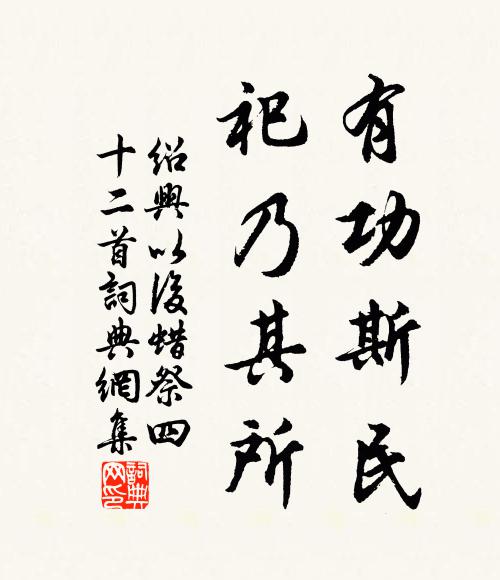 有功斯民
祀乃其所
紹興以後蜡祭四
十二首詞典網集
詞典网印